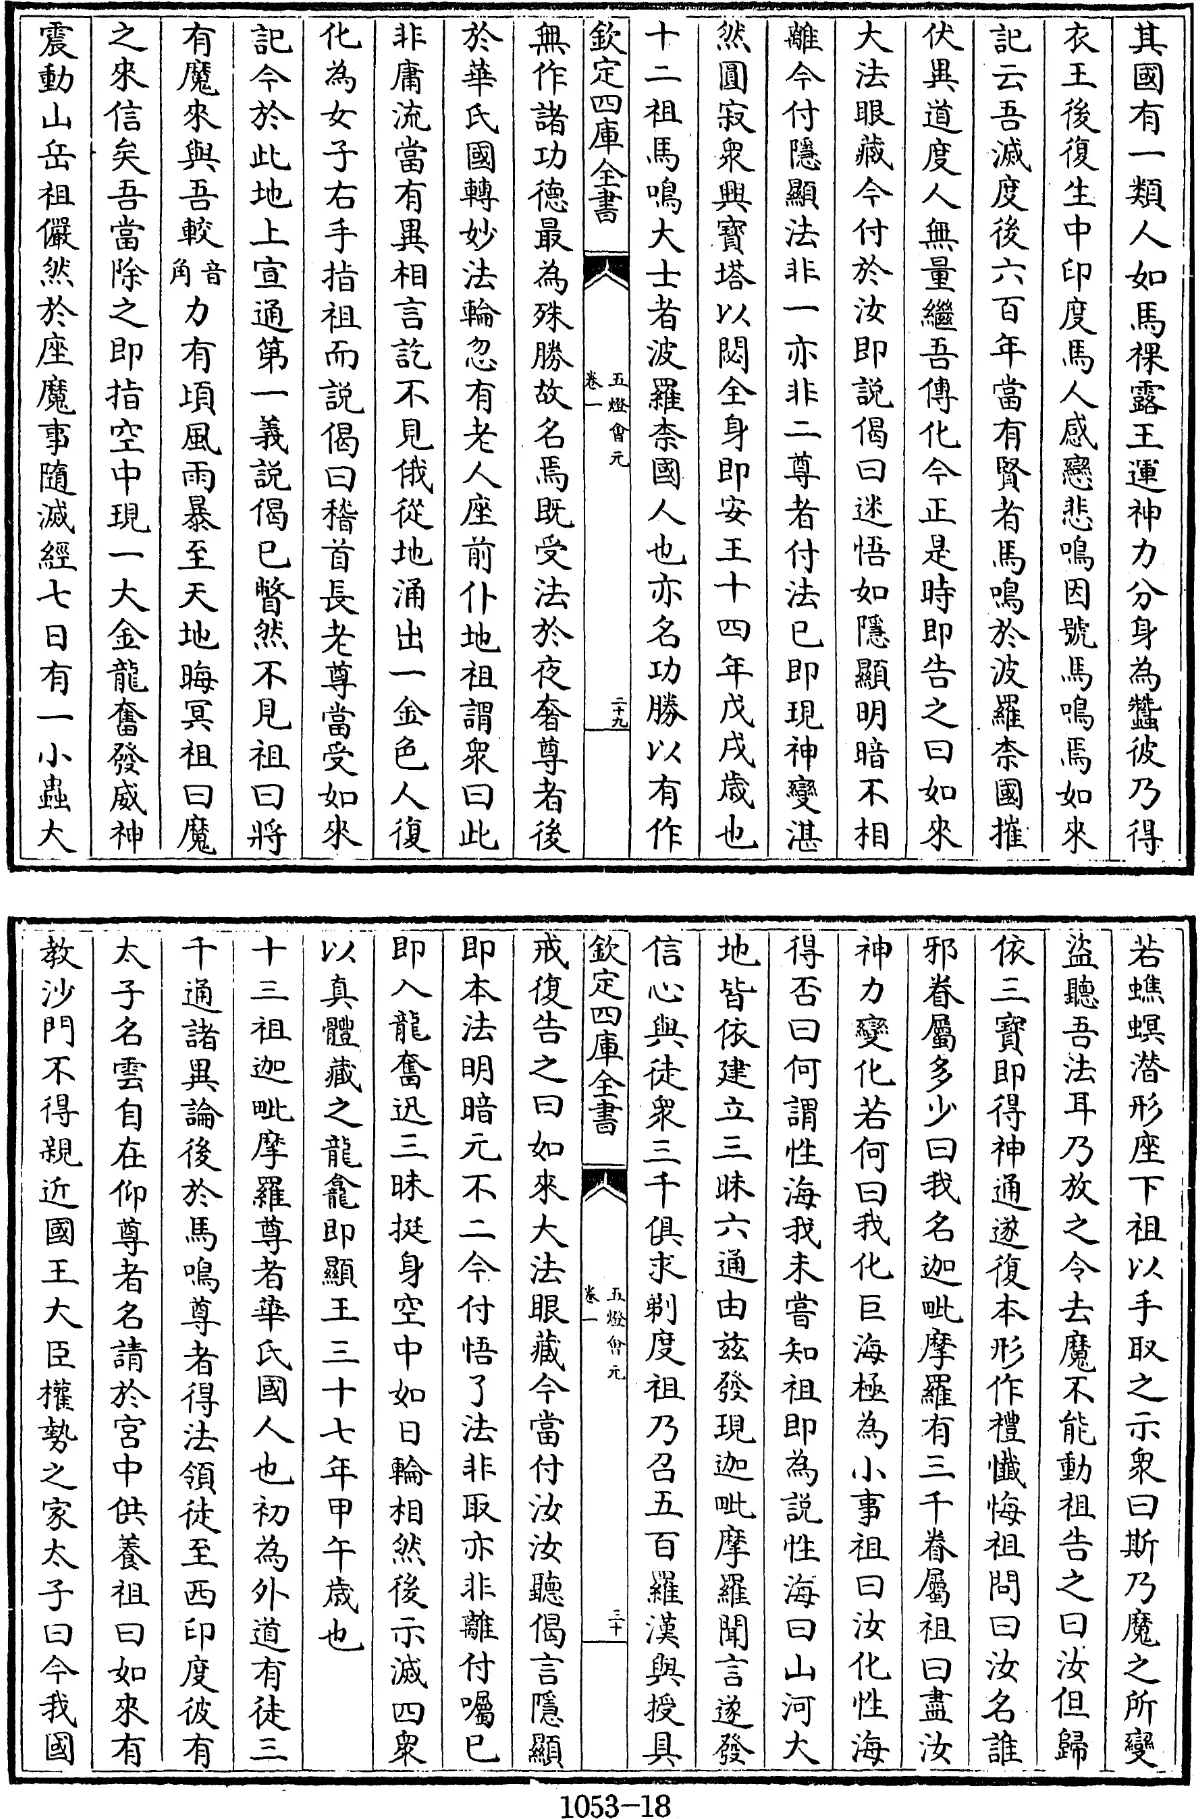 其國有一類人如馬裸露王運神力分身為蠶彼乃得
衣王後復生中印度馬人感戀悲鳴因號馬鳴焉如來
記云吾滅度後六百年當有賢者馬鳴於波羅柰國摧
伏異道度人無量繼吾傳化今正是時即告之曰如來
大法眼藏今付於汝即説偈曰迷悟如隱顯明暗不相
離今付隱顯法非一亦非二尊者付法已即現神變湛
然圓寂衆興寶塔以閟全身即安王十四年戊戌歳也
十二祖馬鳴大士者波羅柰國人也亦名功勝以有作
欽定四庫全書
五燈會元
卷一
二十九
無作諸功德最為殊勝故名焉既受法於夜奢尊者後
於華氏國轉妙法輪忽有老人座前仆地祖謂衆曰此
非庸流當有異相言訖不見俄從地涌出一金色人復
化為女子右手指祖而説偈曰稽首長老尊當受如來
記今於此地上宣通第一義説偈已瞥然不見祖曰將
有魔來與吾較音角力有頃風雨暴至天地晦冥祖曰魔
之來信矣吾當除之即指空中現一大金龍奮發威神
震動山岳祖儼然於座魔事隨滅經七日有一小蟲大
若蟭螟潜形座下祖以手取之示衆曰斯乃魔之所變
盜聽吾法耳乃放之令去魔不能動祖告之曰汝但歸
依三寶即得神通遂復本形作禮懺悔祖問曰汝名誰
邪眷屬多少曰我名迦毗摩羅有三千眷屬祖曰盡汝
神力變化若何曰我化巨海極為小事祖曰汝化性海
得否曰何謂性海我未嘗知祖即為説性海曰山河大
地皆依建立三昧六通由兹發現迦毗摩羅聞言遂發
信心與徒衆三千俱求剃度祖乃召五百羅漢與授具
欽定四庫全書
五燈會元
卷一
三十
戒復告之曰如來大法眼藏今當付汝汝聽偈言隱顯
即本法明暗元不二今付悟了法非取亦非離付囑已
即入龍奮迅三昧挺身空中如日輪相然後示滅四衆
以真體藏之龍龕即顯王三十七年甲午歳也
十三祖迦毗摩羅尊者華氏國人也初為外道有徒三
千通諸異論後於馬鳴尊者得法領徒至西印度彼有
太子名雲自在仰尊者名請於宮中供養祖曰如來有
教沙門不得親近國王大臣權勢之家太子曰今我國
1053-18